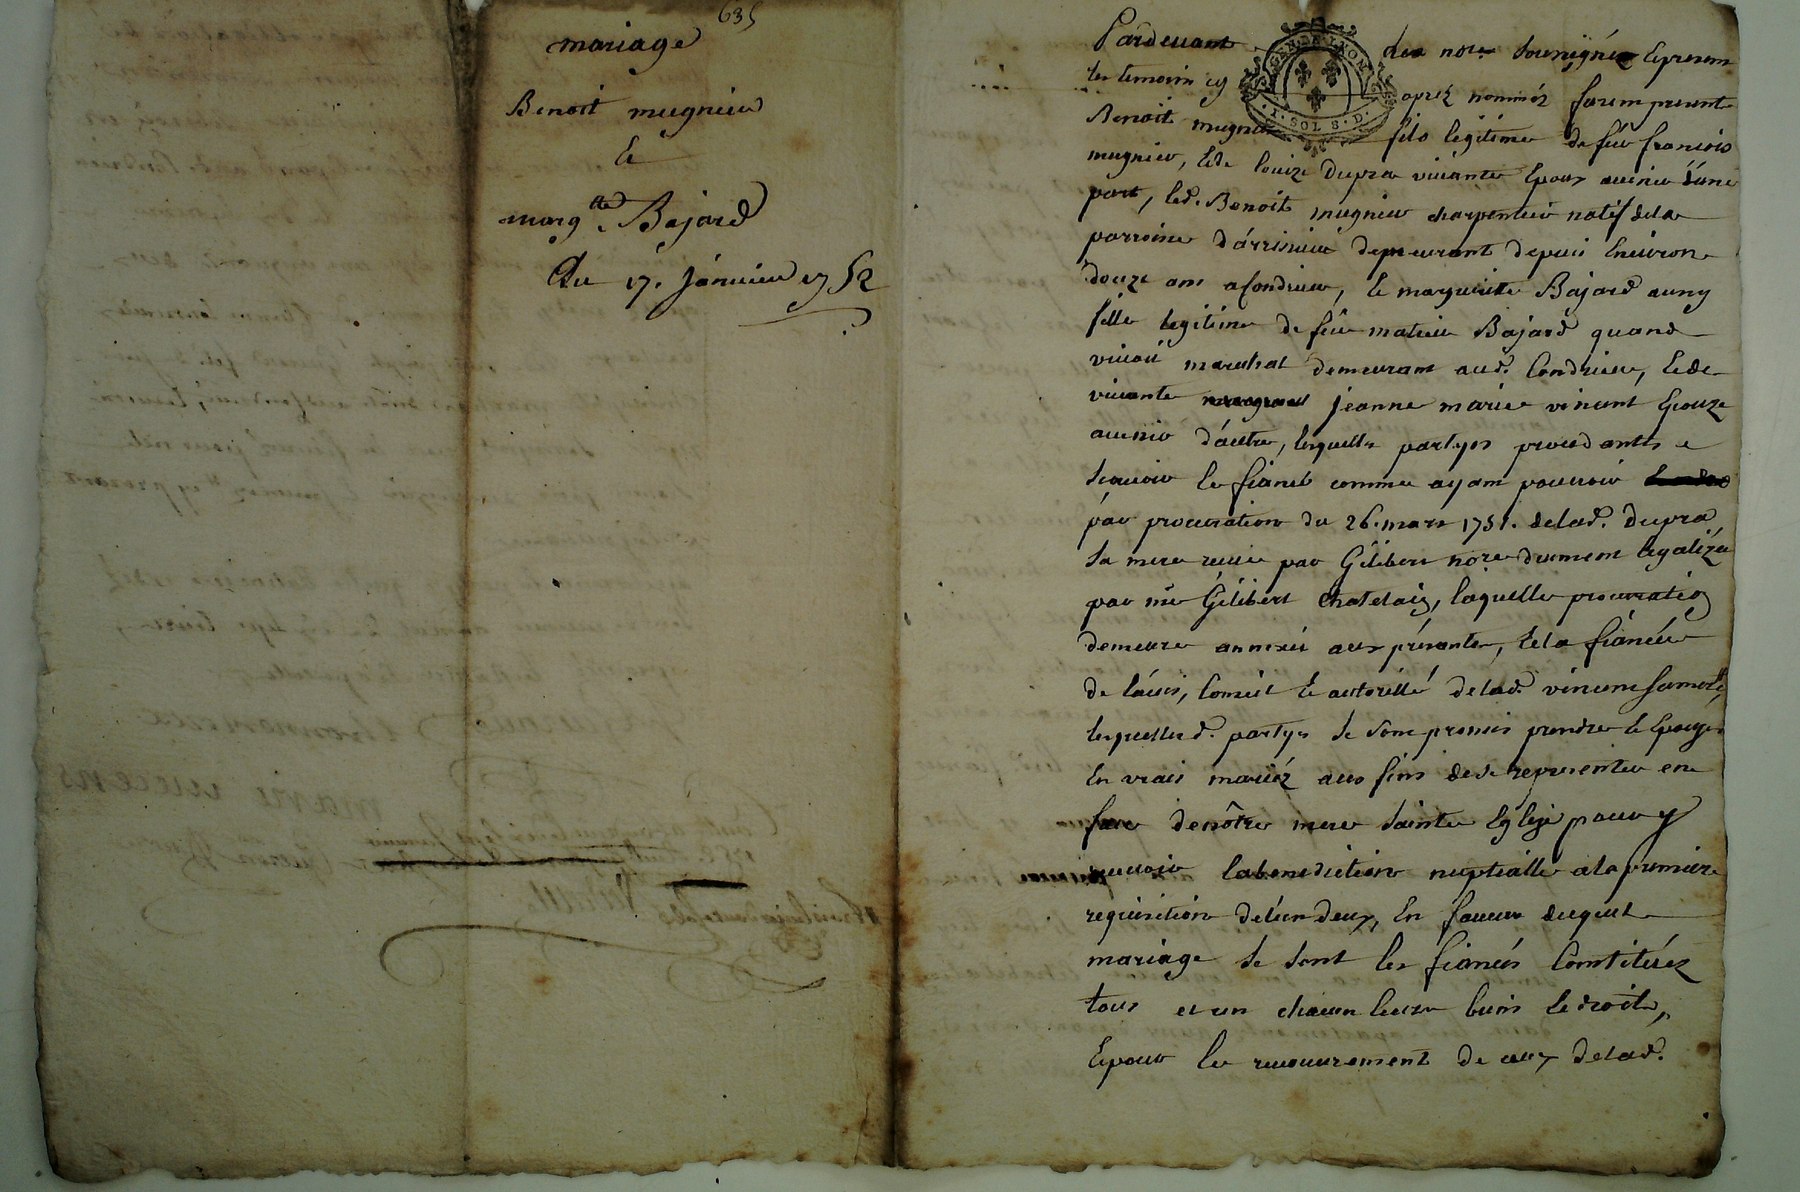 635
mariage
Benoit mugnier
Et
marg.tte Bajard
Du 17. Janvier 1752
Pardevant les not.res Soussignéz Et presens
les temoins cy apréz nommés furent presents
GEN. DE LYON
1. SOL 8. D.
Benoit mugnier fils legitime de feu francois
mugnier, Et de louize Dupra vivante Epoux avenir d'une
part, led. Benoit mugnier charpentier natif de la
parroisse d'arzinieu demeurant depuis Environ
douze ans a Condrieu, Et marguerite Bajard aussy
fille legitime de feu matieu Bajard quand
vivoit marechal demeurant aud. Condrieu, Et de
vivante jeanne marie vincent Epouze
avenir d'autre, lesquelles partyes procedantes
scavoir le fiancé comme ayant pouvoir
par procuration du 26. mars 1751. de lad. Dupra
sa mere receue par Gilibert no.re dument legalizée
par mr Gilibert Chatelain, laquelle procuration
demeure annexée aux présentes, Et la fiancée
de l'avis, Conseil Et autorité de lad. vincent sa mere,
lesquelles d. partyes se sont promis prendre Et Epouzer
En vrais mariéz aux fins de se representer en
face de nôtre mere Sainte Eglize pour y
recevoir la benediction nuptialle a la premiere
requisition de l'un deux, En faveur duquel
mariage se sont les fiancés Constituéz
tous et un chacun leurs biens Et droits,
Et pour le recouvrement de ceux de lad.